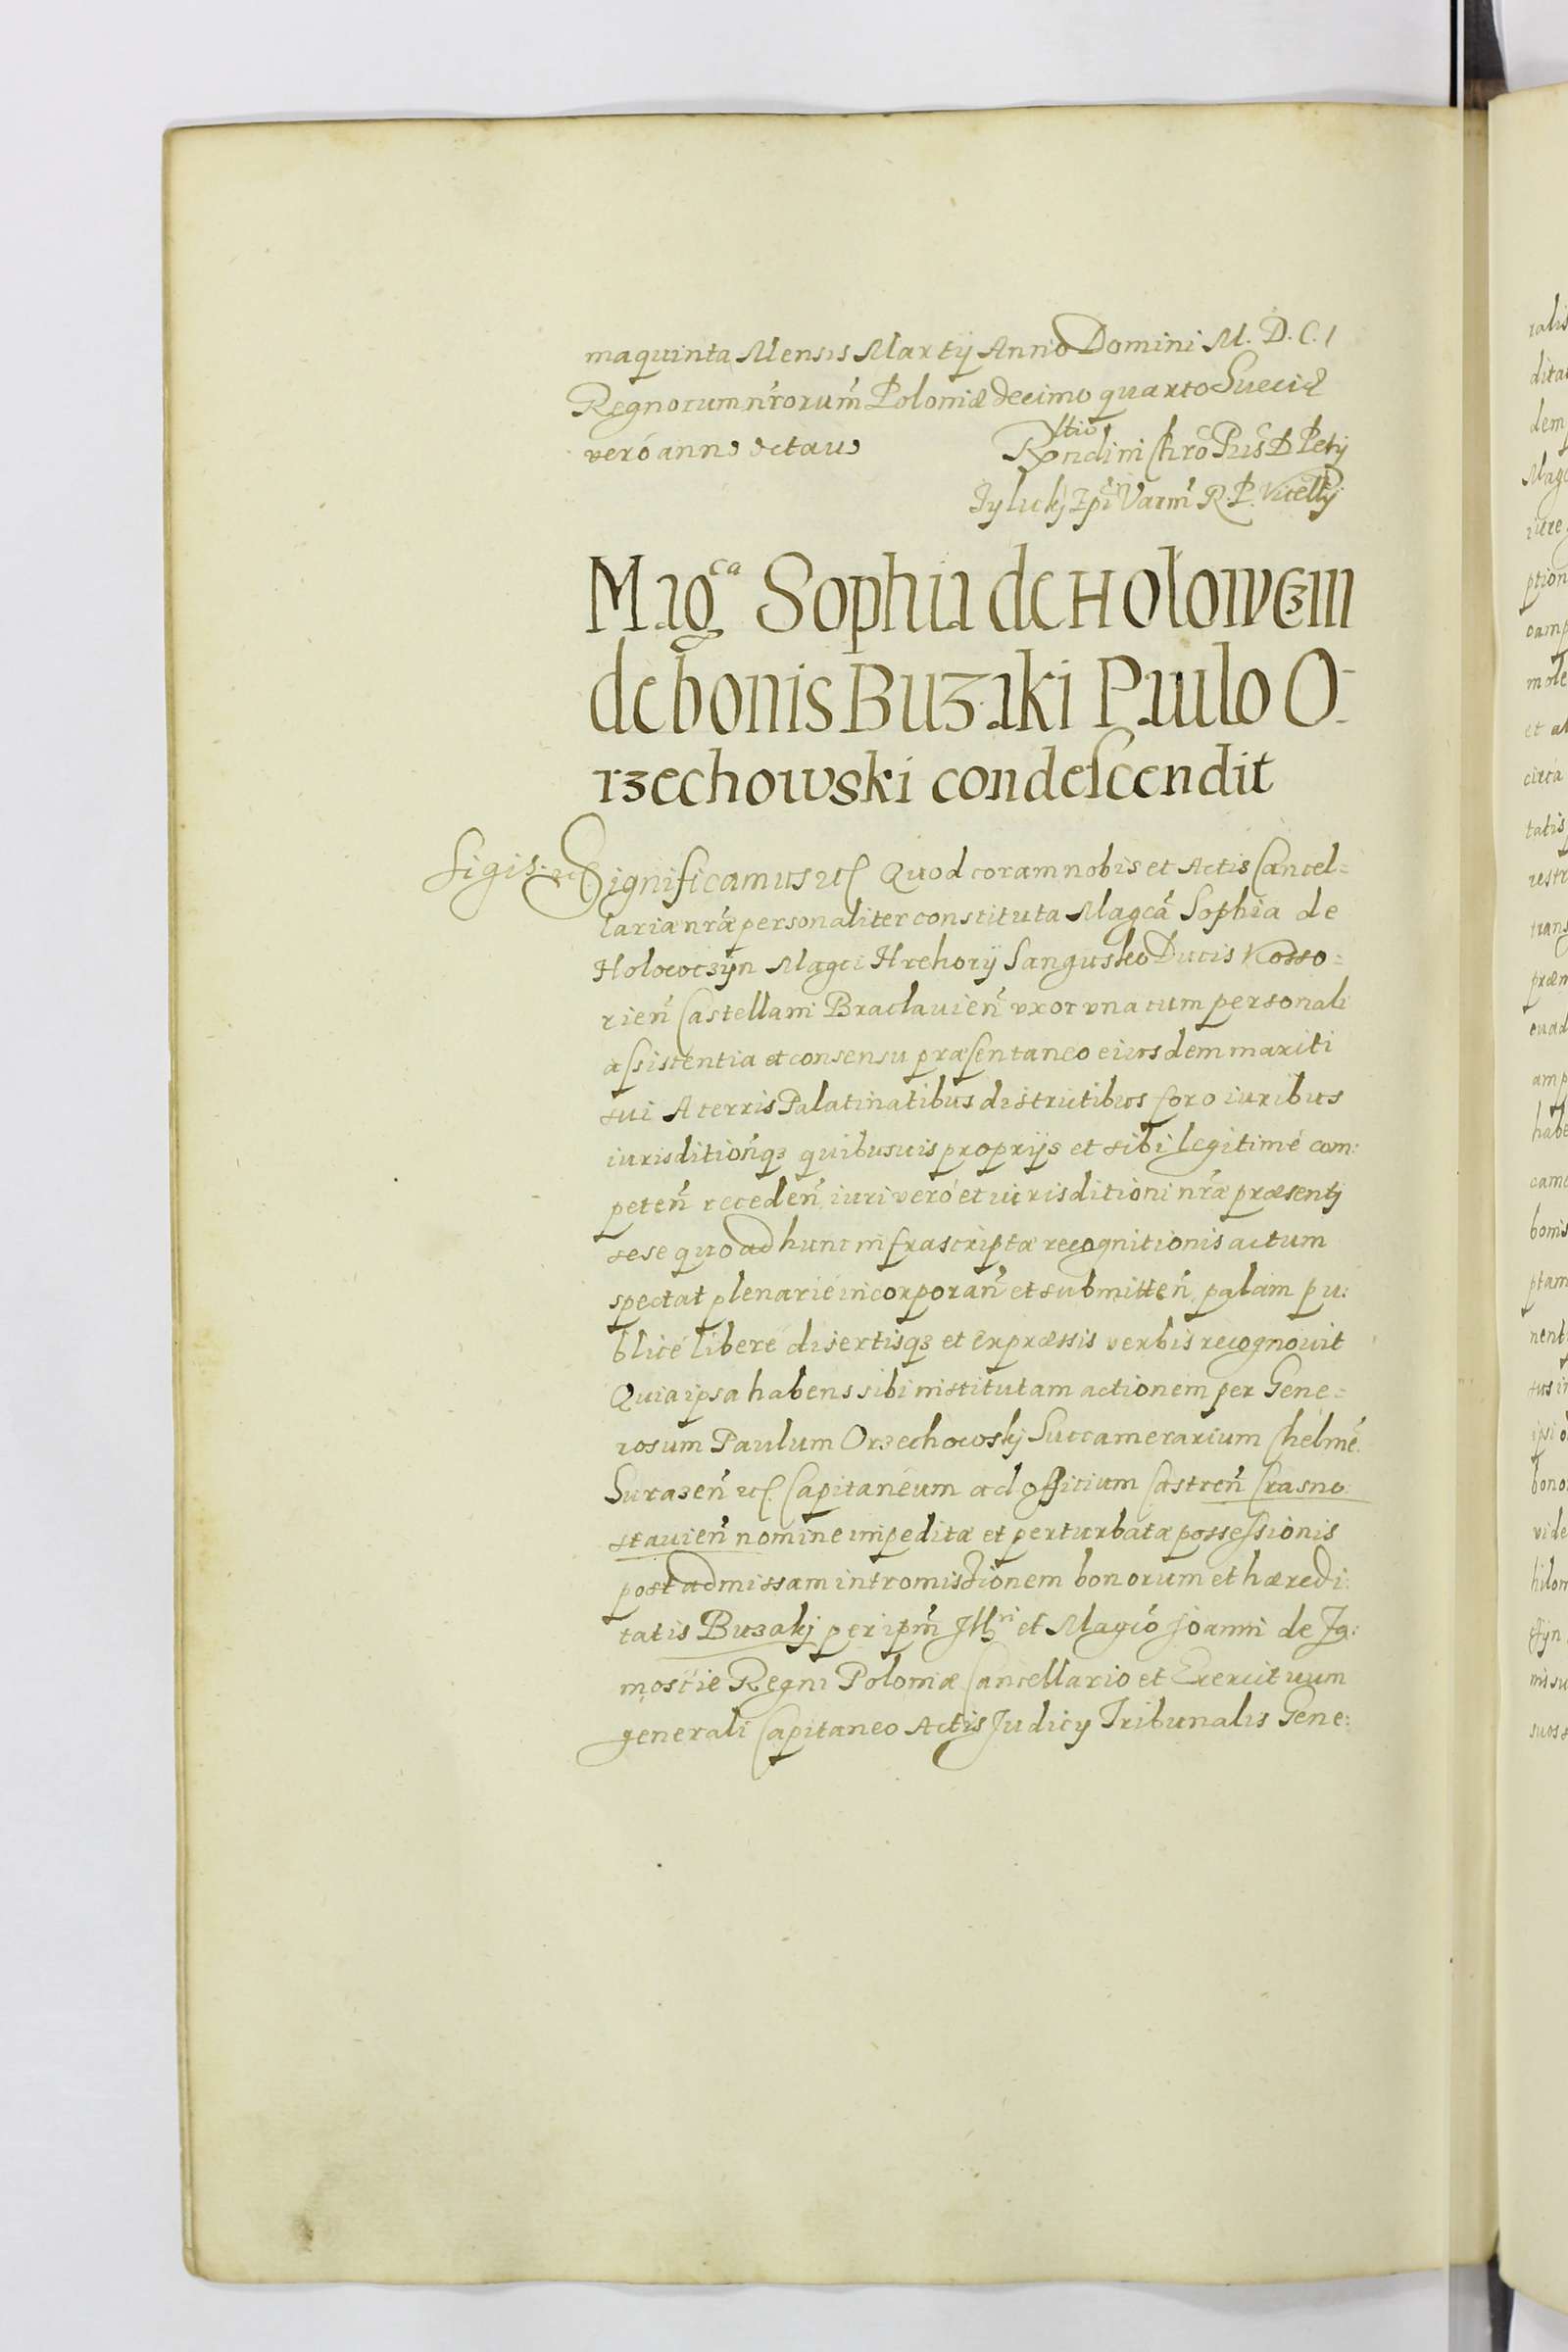 maquinta Mensis Martij Anno Domini M.D.C.I
Regnorum nrorum Poloniæ decimo quarto Sueciæ
veró anno octauo Rltio Rndini Chro Pris D Petrj
Tylickj Epi Varm R. P. Vicecllrj
Mag^ca Sophia de Holowczin
de bonis Buzaki Paulo O-
rzechowski condescendit
Sigis: etc Significamus etc Quod coram nobis et Actis Cancel=
lariæ nræ personaliter constituta Magca Sophia de
Holowczyn Magci Hrehorij Sangusko Ducis Kosso=
rien Castellani Braclauien vxor vna cum personali
assistentia et consensu præsentaneo eiusdem mariti
sui A terris Palatinatibus districtibus foro iuribus
iurisditionqз quibusuis proprijs et sibi legitimé com:
peten receden iuri veró et iurisditioni nræ præsentj
sese quo ad hunc infrascriptæ recognitionis actum
spectat plenarié incorporan et submitten palam pu:
blicé liberé disertisqз et expræssis verbis recognouit
Quia ipsa habens sibi institutam actionem per Gene=
rosum Paulum Orzechowskj Succamerarium Chelmé
Surazen etc. Capitaneum ad officium Castren Crasno
stauien nomine impeditæ et perturbatæ possessionis
post admissam intromissionem bonorum et hæredi:
tatis Buzakj per ipm Illri et Magco Joanni de Za:
moscie Regni Poloniæ Cancellario et Exercituum
generali Capitaneo Actis Judicij Tribunalis Gene: